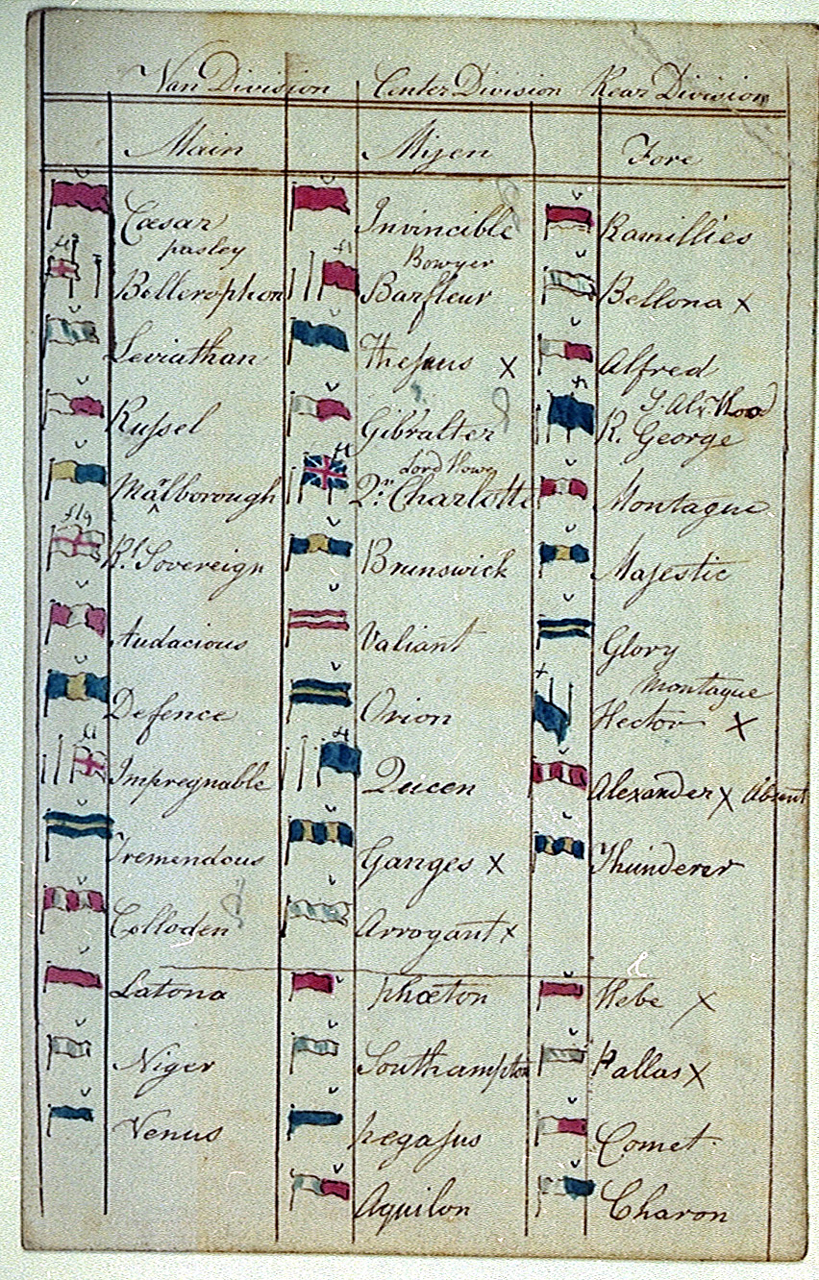 Van Division Center Division Rear Division
Main Mizen Fore
Cæsar Invincible Ramillies
pasley Bowyer
Bellerophon Barfleur Bellona x
Leviathan Theseus x Alfred
Russel Gibralter S. Alx. Hood
R. George
Lord Howe
Malborough Qn. Charlotte Montague
Rl. Sovereign Brunswick Majestic
Audacious Valiant Glory
Montague
Defence Orion Hector x
Impregnable Queen Alexander x Absent
Tremendous Ganges x Thunderer
Colloden Arrogant x
Latona phæton Hebe x
Niger Southampton Pallas x
Venus pegasus Comet
Aquilon Charon